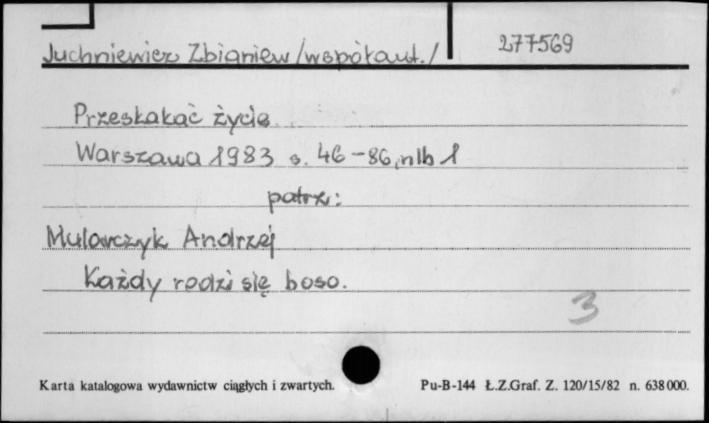 Juchniewicz Zbigniew /współaut./
277569
Przeskakać życie.
Warszawa 1983 s. 46-86, nlb 1
patrz:
Mularczyk Andrzej
Każdy rodzi się boso.
3
Karta katalogowa wydawnictw ciągłych i zwartych.
Pu-B-144 Ł.Z.Graf. Z. 120/15/82 n. 638000.